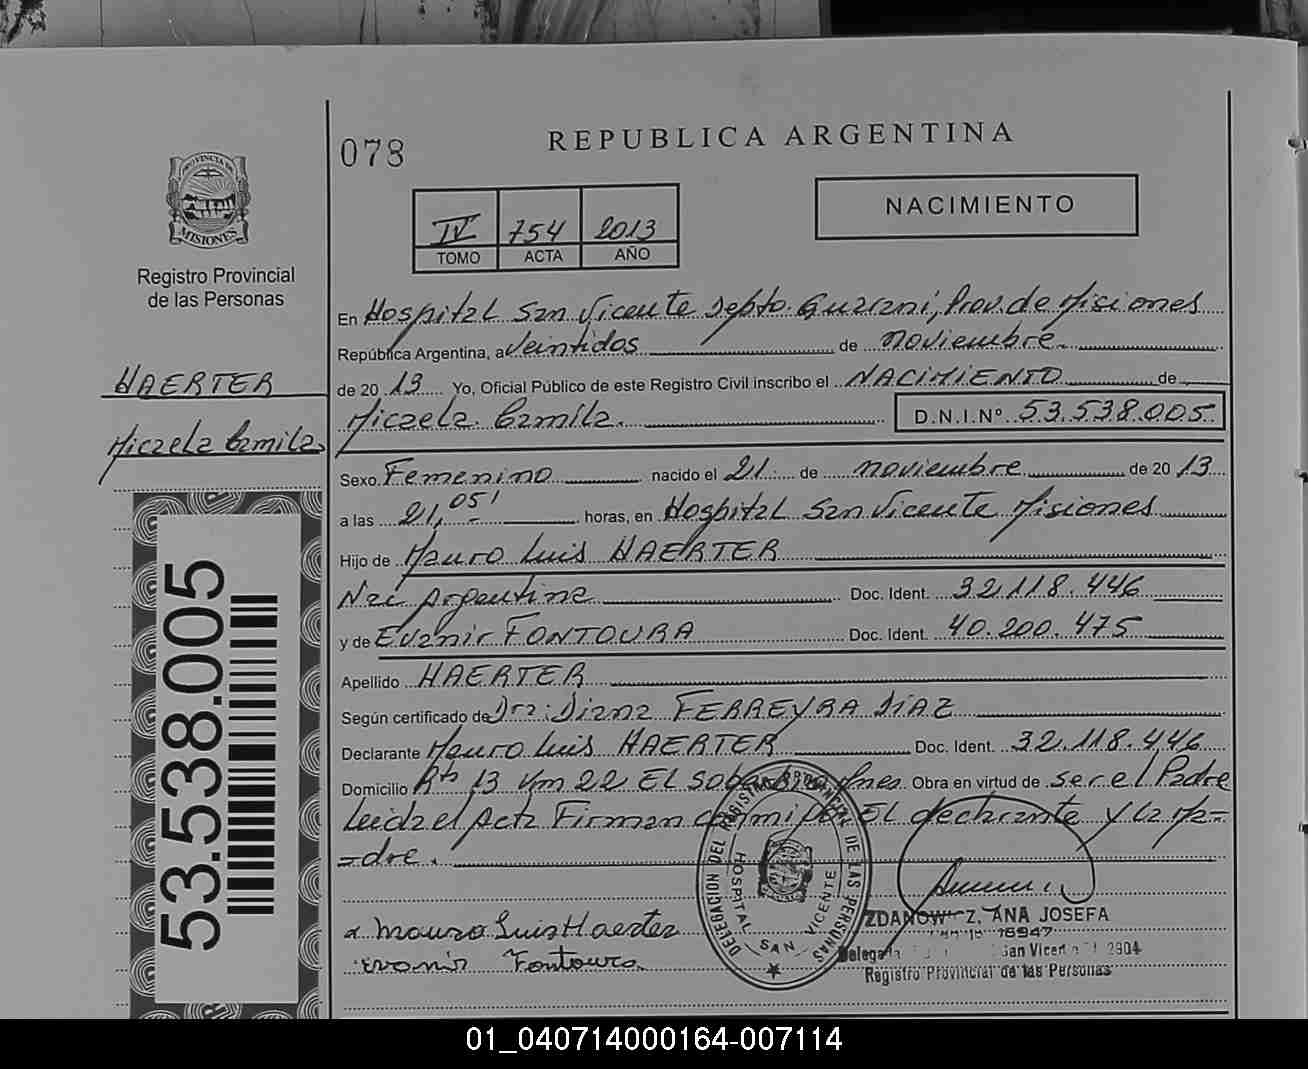 078
REPUBLICA ARGENTINA
PROVINCIA DE
MISIONES
Registro Provincial
de las Personas
IV 754 2013
TOMO ACTA AÑO
NACIMIENTO
En Hospital San Vicente Depto. Guarani, Prov. de Misiones
República Argentina, a Veintidos de noviembre
de 2013 Yo, Oficial Público de este Registro Civil inscribo el NACIMIENTO de
HAERTER
Micaela Camila
Micaela Camila. D.N.I.Nº 53.538.005
Sexo Femenino nacido el 21 de noviembre de 2013
a las 21,05' horas, en Hospital San Vicente Misiones
Hijo de Mauro Luis HAERTER
Nac Argentina Doc. Ident. 32.118.446
y de Evanir FONTOURA Doc. Ident. 40.200.475
Apellido HAERTER
Según certificado de Dra: Diana FERREYRA DIAZ
Declarante Mauro Luis HAERTER Doc. Ident. 32.118.446
Domicilio Rta 13 Km 22 EL Soberbio Mnes. Obra en virtud de ser el Padre
Leida el Acta Firman conmigo EL declarante Y La Ma=
=dre.
53.538.005
DELEGACION DEL REGISTRO PROVINCIAL DE LAS PERSONAS
HOSPITAL SAN VICENTE
Mauro Luis Haerter
evanir Fontoura
Z. ANA JOSEFA
16947
San Vicente
2904
Registro Provincial de las Personas
01_040714000164-007114